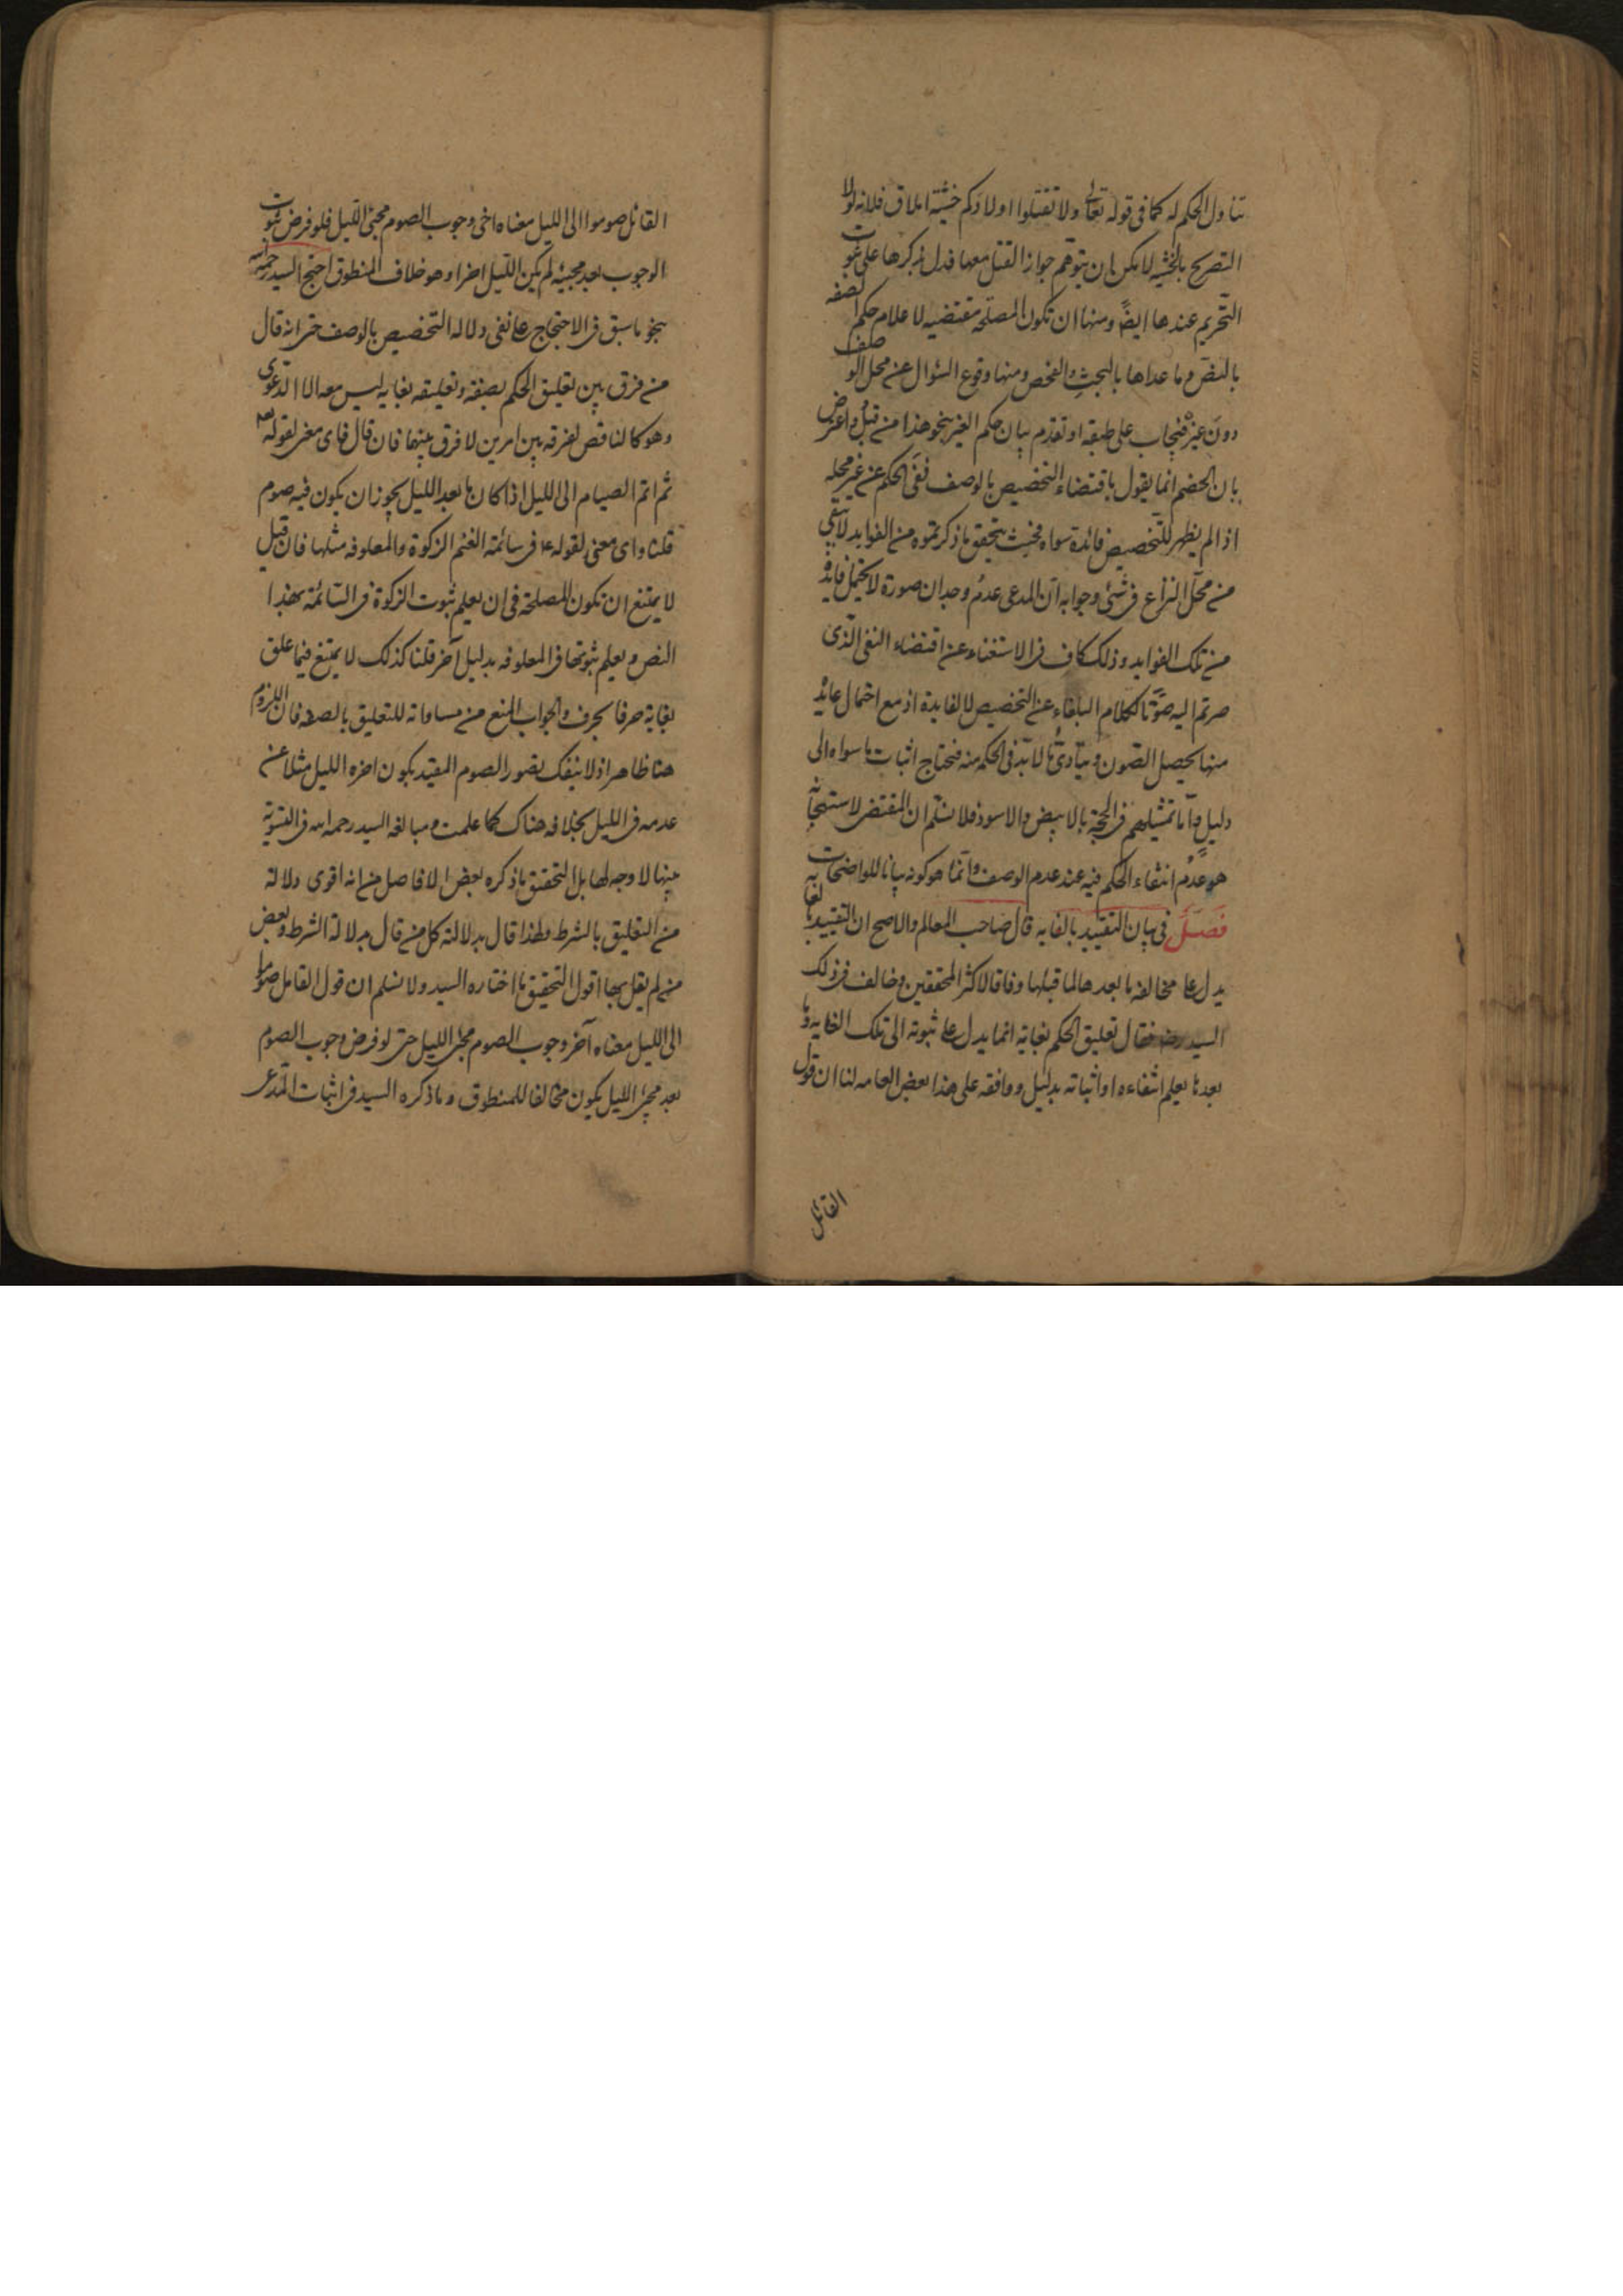 تناول الحكم له كما فى قوله تعالى ولا تقتلوا اولادكم خشية املاق فلانه لولا
التصريح بالخشيه لامكن ان يتوهم جواز القتل معها فدل بذكرها على ثبوت
التحريم عندها ايضًا ومنها ان تكون المصلحه مقتضيه لاعلام حكم الصفه
بالنص وما عداها بالبحث والفحص ومنها وقوع السؤال عن محل الوصف
دون غيره فيجاب على طبقه او تقدم بيان حكم الغير بنحو هذا من قبل واعترض
بان الخصم انما يقول باقتضاء التخصيص بالوصف نفى الحكم عن غير محله
اذا لم يظهر للتخصيص فائدة سواه فحيث يتحقق ما ذكرتموه من الفوايد لا يبقى
من محل النزاع فى شئ وجوابه ان المدعى عدم وجدان صورة لا يحتمل فايدة
من تلك الفوايد وذلك كاف فى الاستغناء عن اقتضاء النفى الذى
صرتم اليه صونا لكلام البلغاء عن التخصيص لا لفايدة اذ مع احتمال فايدة
منها يحصل الصون ويتادى ما لا بد فى الحكمه منه فيحتاج اثبات ما سواه الى
دليل واما تمثيلهم فى الحجة بالابيض والاسود فلا نسلم ان المقتضى لاستهجانه
هو عدم انتفاء الحكم فيه عند عدم الوصف وانما هو كونه بيانا للواضحات
فصل فى بيان التقييد بالغايه قال صاحب المعالم والاصح ان التقييد بالغايه
يدل على مخالفه ما بعدها لما قبلها وفاقا لاكثر المحققين وخالف فى ذلك
السيد رضه فقال تعليق الحكم بغاية انما يدل على ثبوته الى تلك الغايه وما
بعدها يعلم انتفاءه او اثباته بدليل ووافقه على هذا بعض العامه لنا ان قول
القائل
القائل صوموا الى الليل معناه اخر وجوب الصوم مجئ الليل فلو فرض ثبوت
الوجوب بعد مجيئه لم يكن الليل اخرا وهو خلاف المنطوق احتج السيد رحمه الله
بنحو ما سبق فى الاحتجاج على نفى دلالة التخصيص بالوصف حتى انه قال
من فرق بين تعليق الحكم بصفة وتعليقه بغايه ليس معه الا الدعوى
وهو كالمناقض لفرقه بين امرين لا فرق بينهما فان قال فاى معنى لقوله تعه
ثم اتموا الصيام الى الليل اذا كان ما بعد الليل يجوز ان يكون فيه صوم
قلنا واى معنى لقوله ع فى سائمة الغنم الزكوة والمعلوفه مثلها فان قيل
لا يمتنع ان تكون المصلحة فى ان يعلم ثبوت الزكوة فى السائمة بهذا
النص ويعلم ثبوتها فى المعلوفه بدليل آخر قلنا كذلك لا يمتنع فيما علق
بغاية حرفا بحرف والجواب المنع من مساواته للتعليق بالصفه فان اللزوم
هنا ظاهر اذ لا ينفك تصور الصوم المقيد بكون اخره الليل مثلا عن
عدمه فى الليل بخلافه هناك كما علمت ومبالغه السيد رحمه الله فى التسوية
بينهما لا وجه لها بل التحقيق ما ذكره بعض الافاضل من انه اقوى دلالة
من التعليق بالشرط ولهذا قال بدلالته كل من قال بدلالة الشرط وبعض
من لم يقل بها اقول التحقيق ما اختاره السيد ولا نسلم ان قول القائل صوموا
الى الليل معناه آخر وجوب الصوم مجئ الليل حتى لو فرض وجوب الصوم
بعد مجئ الليل يكون مخالفا للمنطوق وما ذكره السيد فى اثبات المدعى